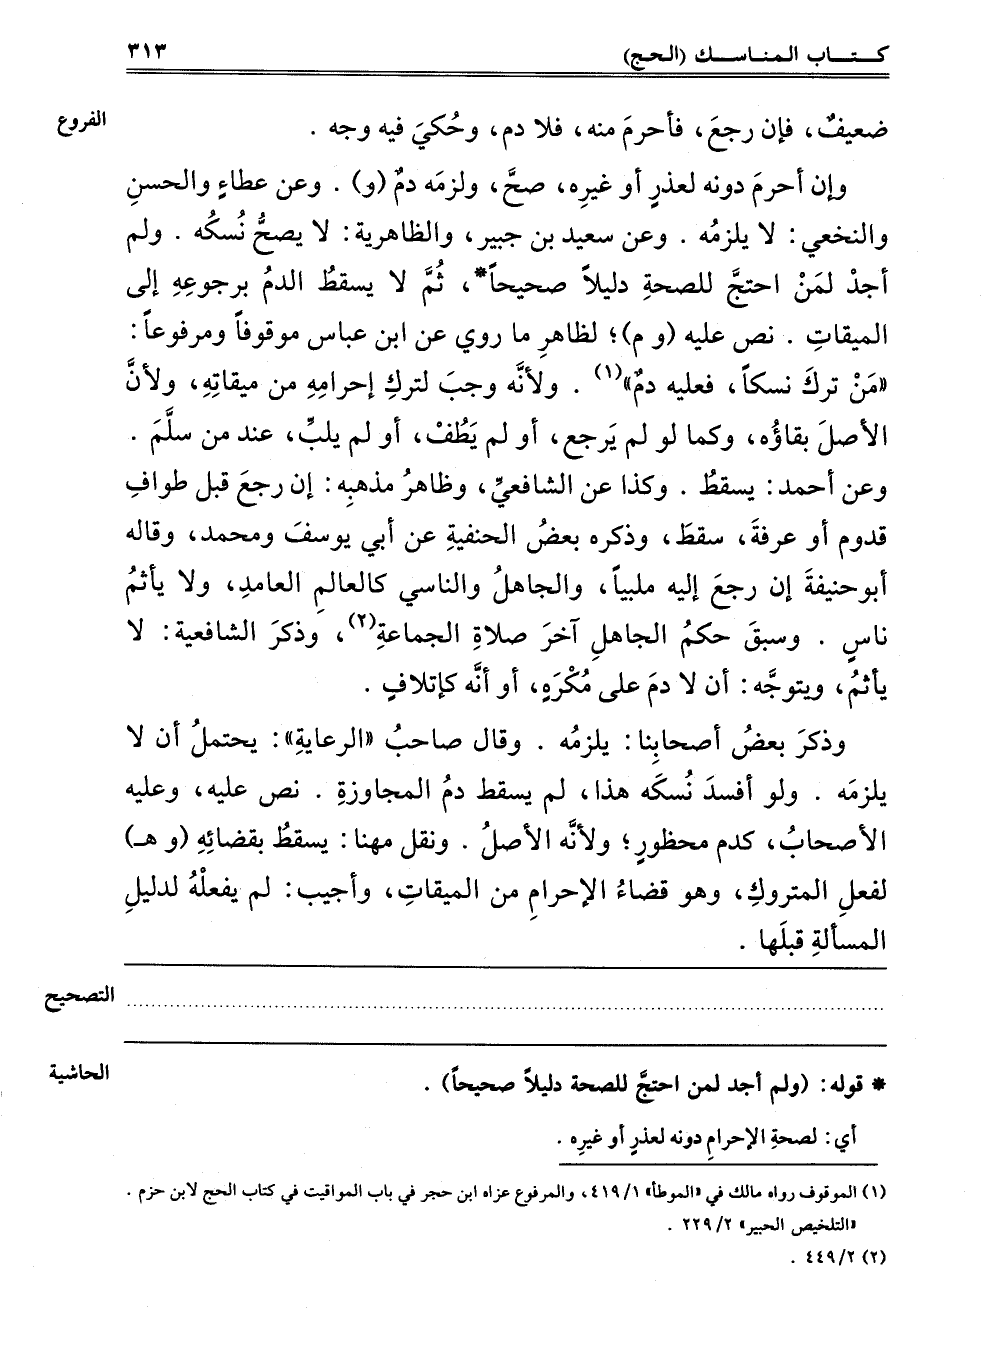 كتاب المناسك (الحج) ٣١٣
الفروع
ضعيفٌ، فإن رجعَ، فأحرمَ منه، فلا دم، وحُكيَ فيه وجه .
وإن أحرمَ دونه لعذرٍ أو غيرِه، صحَّ، ولزمَه دمٌ (و) . وعن عطاءٍ والحسنِ
والنخعي: لا يلزمُه . وعن سعيد بن جبير، والظاهرية: لا يصحُّ نُسكُه . ولم
أجدْ لمَنْ احتجَّ للصحةِ دليلاً صحيحاً*، ثُمَّ لا يسقطُ الدمُ برجوعِهِ إلى
الميقاتِ . نص عليه (و م)؛ لظاهرِ ما روي عن ابن عباس موقوفاً ومرفوعاً:
«مَنْ تركَ نسكاً، فعليه دمٌ»(١) . ولأنَّه وجبَ لتركِ إحرامِهِ من ميقاتِهِ، ولأنَّ
الأصلَ بقاؤُه، وكما لو لم يَرجع، أو لم يَطُفْ، أو لم يلبِّ، عند من سلَّمَ .
وعن أحمد: يسقطُ . وكذا عن الشافعيِّ، وظاهرُ مذهبِه: إن رجعَ قبل طوافِ
قدوم أو عرفةَ، سقطَ، وذكره بعضُ الحنفيةِ عن أبي يوسفَ ومحمد، وقاله
أبوحنيفةَ إن رجعَ إليه ملبياً، والجاهلُ والناسي كالعالمِ العامدِ، ولا يأثمُ
ناسٍ . وسبقَ حكمُ الجاهلِ آخرَ صلاةِ الجماعةِ(٢)، وذكرَ الشافعية: لا
يأثمُ، ويتوجَّه: أن لا دمَ على مُكْرَهٍ، أو أنَّه كإتلافٍ .
وذكرَ بعضُ أصحابِنا: يلزمُه . وقال صاحبُ «الرعايةِ»: يحتملُ أن لا
يلزمَه . ولو أفسدَ نُسكَه هذا، لم يسقط دمُ المجاوزةِ . نص عليه، وعليه
الأصحابُ، كدم محظورٍ؛ ولأنَّه الأصلُ . ونقل مهنا: يسقطُ بقضائِهِ (و هـ)
لفعلِ المتروكِ، وهو قضاءُ الإحرامِ من الميقاتِ، وأجيب: لم يفعلْهُ لدليلِ
المسألةِ قبلَها .
التصحيح ........................................
الحاشية
* قوله: (ولم أجد لمن احتجَّ للصحة دليلاً صحيحاً) .
أي: لصحةِ الإحرامِ دونه لعذرٍ أو غيرِه .
(١) الموقوف رواه مالك في «الموطأ» ٤١٩/١، والمرفوع عزاه ابن حجر في باب المواقيت في كتاب الحج لابن حزم .
«التلخيص الحبير» ٢٢٩/٢ .
(٢) ٤٤٩/٢ .